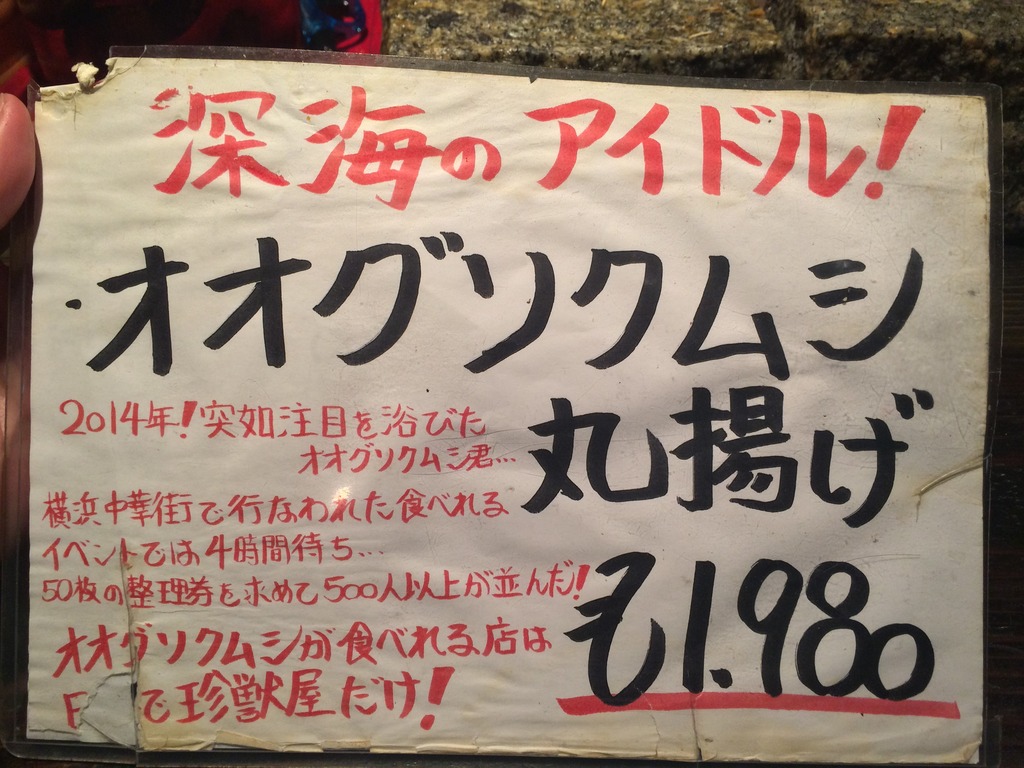 深海のアイドル!
オオグソクムシ
丸揚げ
2014年!突如注目を浴びた
オオグソクムシ君…
横浜中華街で行なわれた食べれる
イベントでは4時間待ち…
50枚の整理券を求めて500人以上が並んだ!
オオグソクムシが食べれる店は
で珍獣屋だけ!
¥1.980